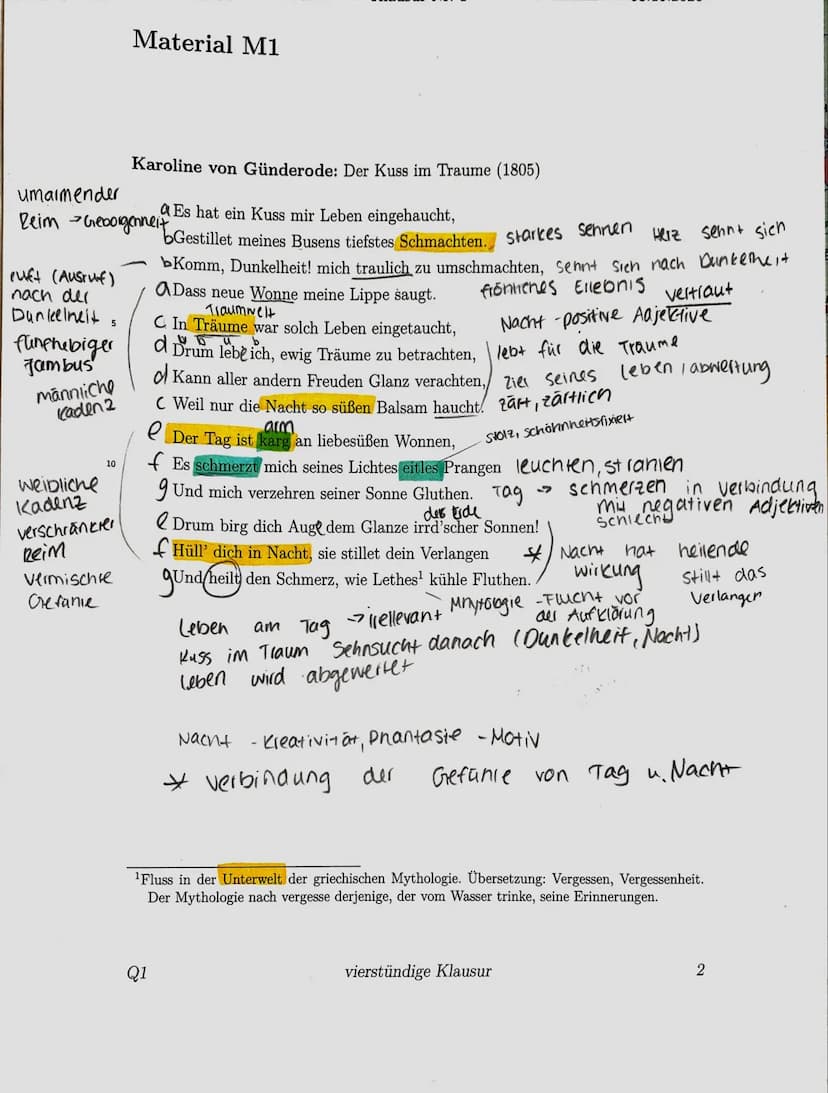 Material M1
Karoline von Günderode: Der Kuss im Traume (1805)
umarmender
Reim → Geborgenheit
a Es hat ein Kuss mir Leben eingehaucht,
b Gestillet meines Busens tiefstes Schmachten. starkes sehnen Herz sehnt sich
b Komm, Dunkelheit! mich traulich zu umschmachten, sehnt sich nach Dunkelheit
a Dass neue Wonne meine Lippe saugt. fröhliches Erlebnis vertraut
ruft (Ausruf)
nach der
Dunkelheit
Traumwelt
5 c In Träume war solch Leben eingetaucht, Nacht - positive Adjektive
d Drum leb' ich, ewig Träume zu betrachten, lebt für die Träume
d Kann aller andern Freuden Glanz verachten, Ziel seines leben / abwertung
c Weil nur die Nacht so süßen Balsam haucht. zart, zärtlich
fünfhebiger
Jambus
männliche
Kadenz
arm
e Der Tag ist karg an liebesüßen Wonnen, stolz, schönheitsfixiert
10 f Es schmerzt mich seines Lichtes eitles Prangen leuchten, strahlen
g Und mich verzehren seiner Sonne Gluthen. Tag → schmerzen in verbindung
mit negativen Adjektiven
schlecht
der Erde
e Drum birg dich Aug' dem Glanze irrd'scher Sonnen!
f Hüll' dich in Nacht, sie stillet dein Verlangen * Nacht hat heilende
wirkung stillt das
Verlangen
g Und heilt den Schmerz, wie Lethes¹ kühle Fluthen.
weibliche
Kadenz
verschränkter
Reim
vermischte
Gefühle
Mythologie - Flucht vor
der Aufklärung
Leben am Tag → irrelevant
Kuss im Traum Sehnsucht danach (Dunkelheit, Nacht)
leben wird abgewertet
Nacht - Kreativität, Phantasie - Motiv
* verbindung der Gefühle von Tag u. Nacht
¹Fluss in der Unterwelt der griechischen Mythologie. Übersetzung: Vergessen, Vergessenheit.
Der Mythologie nach vergesse derjenige, der vom Wasser trinke, seine Erinnerungen.
Q1 vierstündige Klausur 2